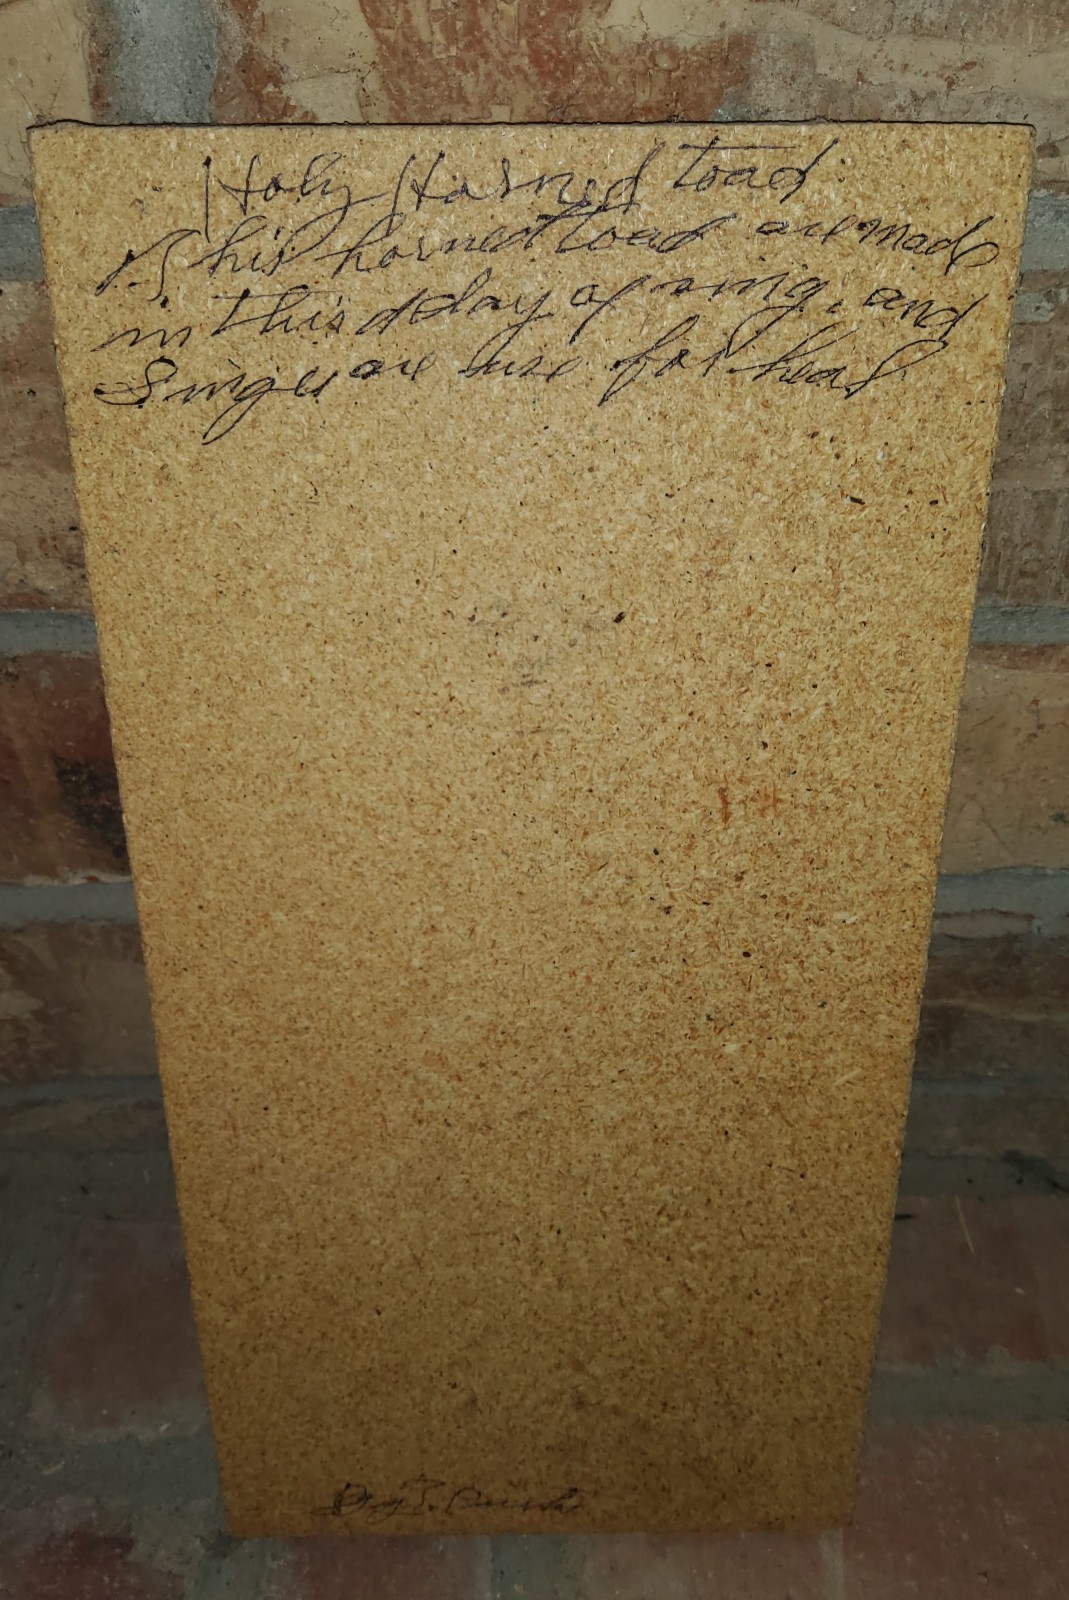 Holy Horned Toad
This horned toad are made
in this day of sing, and
Singer are use for heal
By